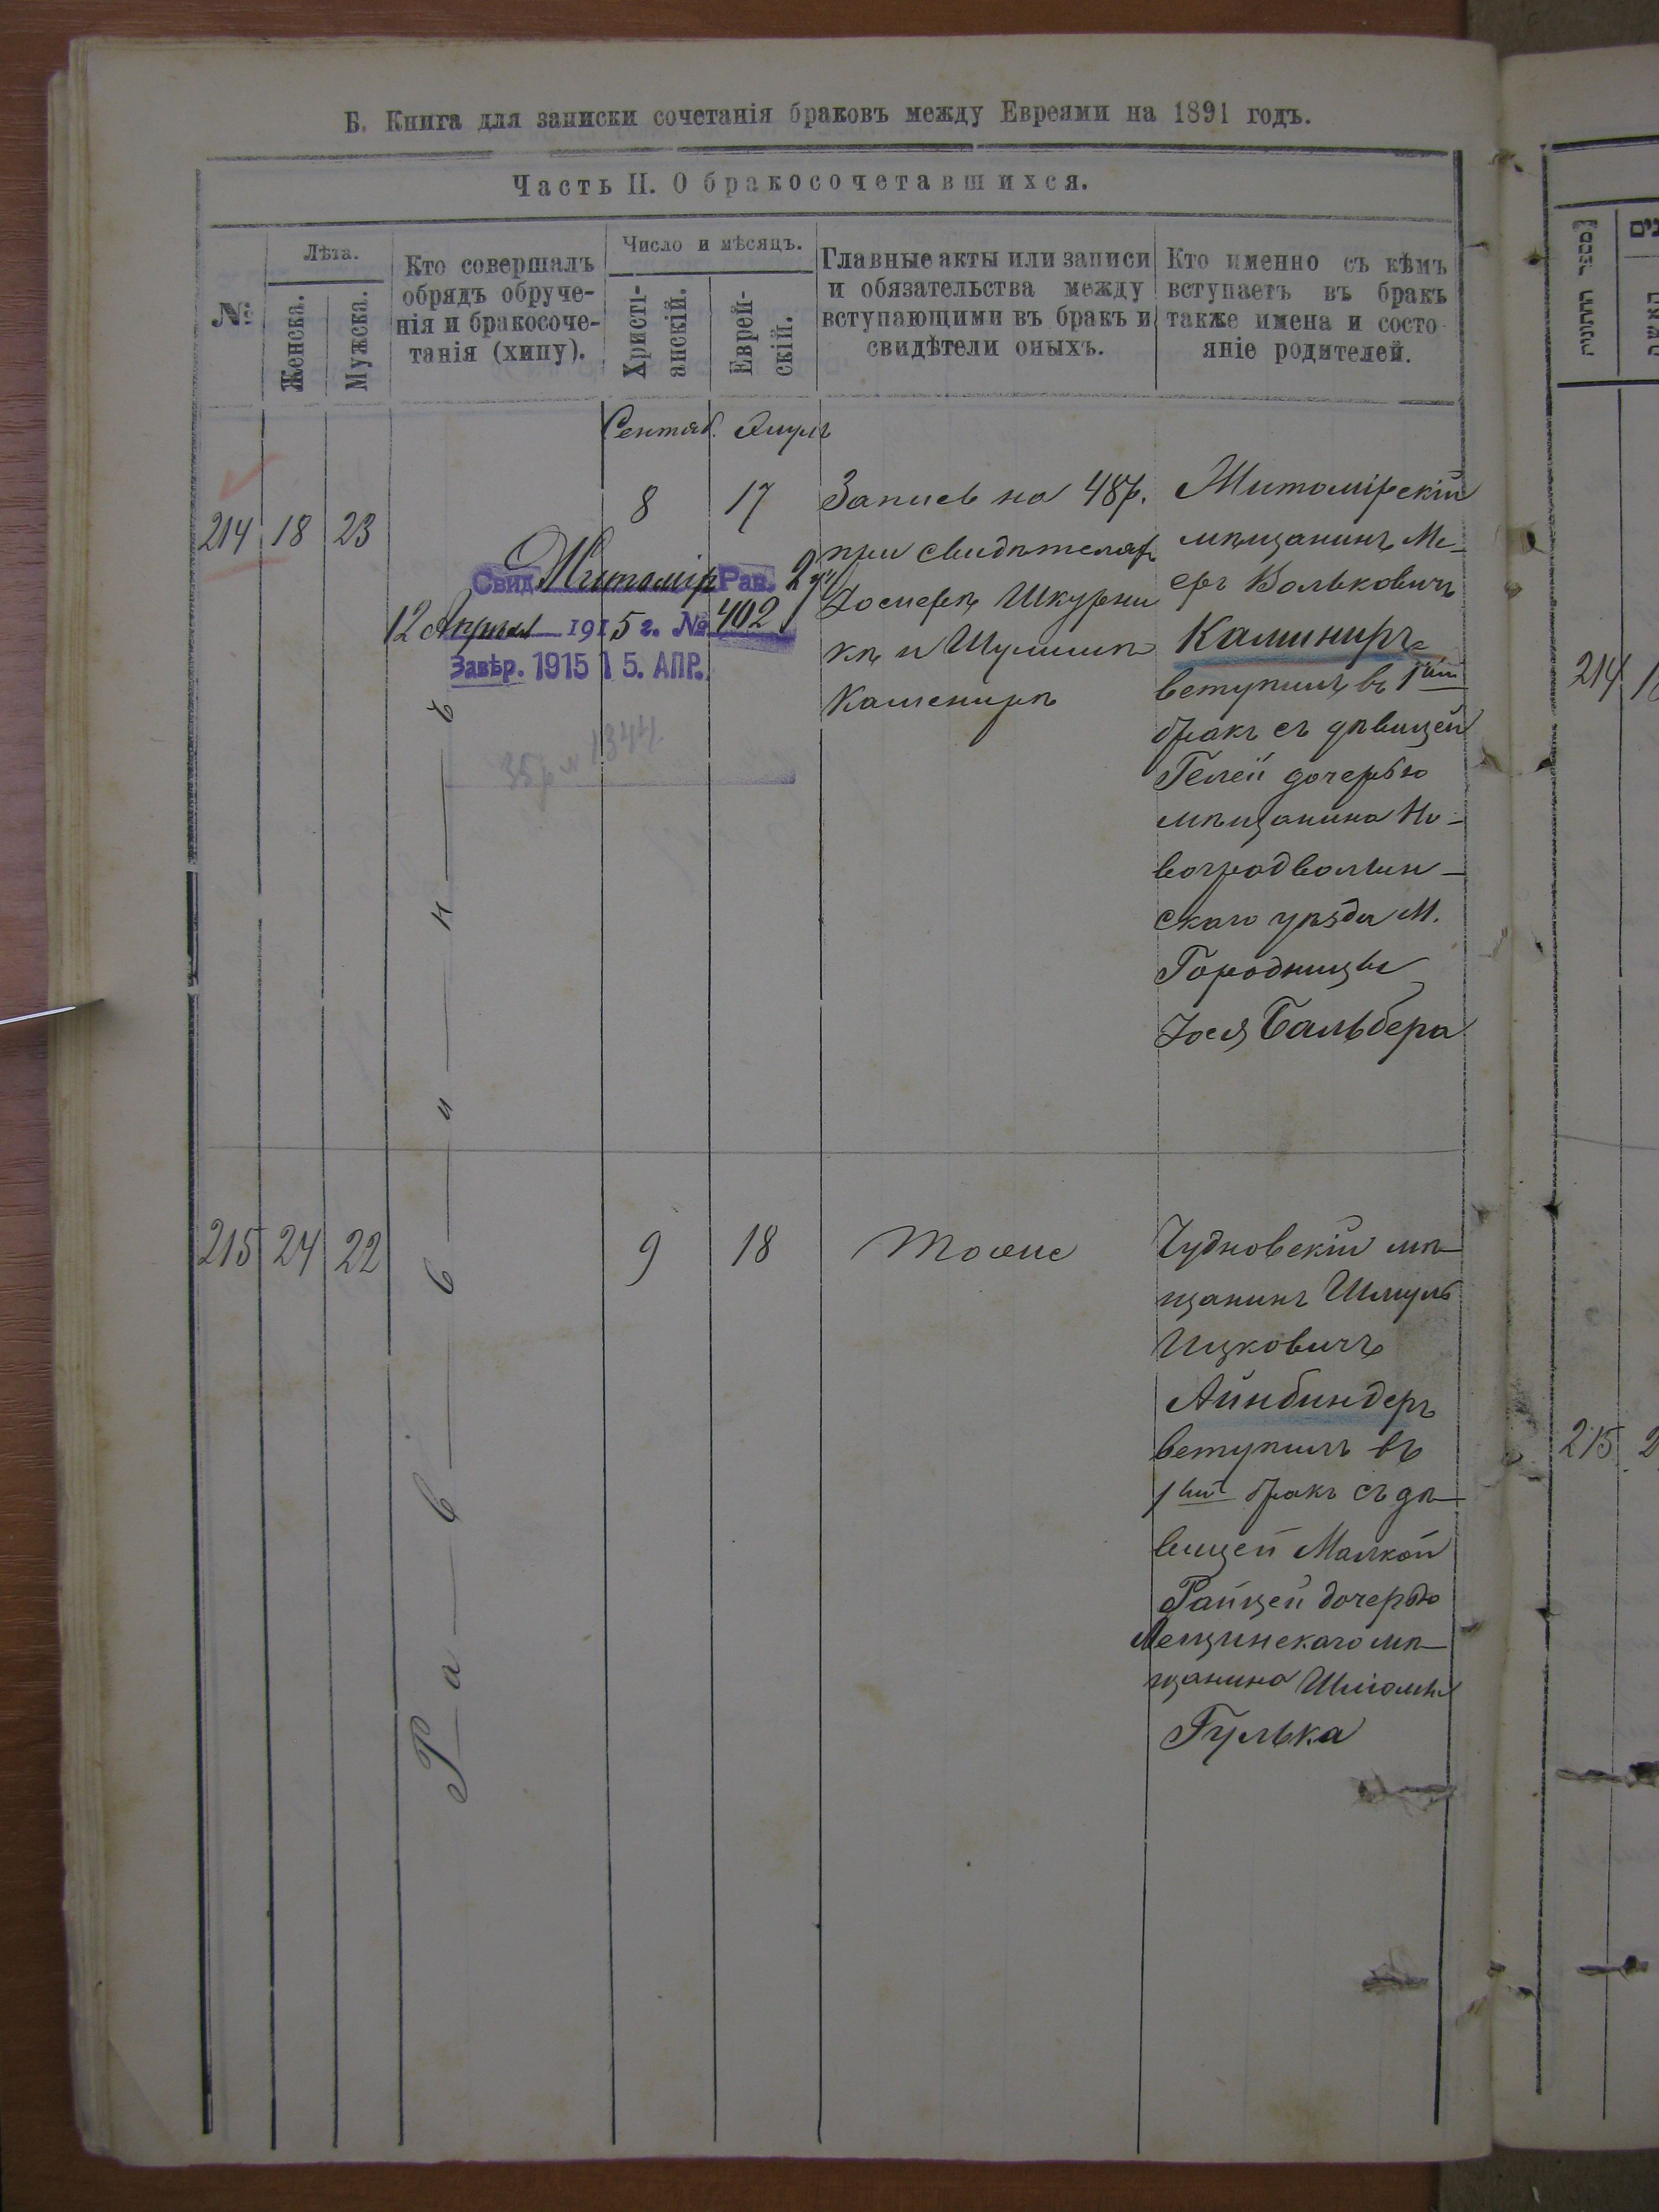 Б. Книга для записки сочетанія браковъ между Евреями на 1891 годъ.
Часть II. О бракосочетавшихся.
№
Лѣта.
Женска.
Мужска.
Кто совершалъ
обрядъ обруче-
нія и бракосоче-
танія (хипу).
Число и мѣсяцъ.
Христі-
анскій.
Еврей-
скій.
Главные акты или записи
и обязательства между
вступающими въ бракъ и
свидѣтели оныхъ.
Кто именно съ кѣмъ
вступаетъ въ бракъ
также имена и состо-
яніе родителей.
Сентяб. Элулъ
214 18 23
Раввинъ
8 17
Свид. Житомір Рав.
12 Апреля 1915 г. № 402
Завѣр. 1915 15. АПР.
1344
Запись на 48 р.
при свидѣтеляхъ
Іосифѣ Шкурни
кѣ и Шулимѣ
Каменирѣ
Житомірскій
мѣщанинъ Ме-
еръ Вольковичъ
Каминиръ
вступилъ въ 1ый
бракъ съ дѣвицей
Гелей дочерью
мѣщанина Но-
воградволын-
скаго уѣзда М.
Городницы
Іося Бальбера
215 24 22
9 18
Тоже
Чудновскій мѣ-
щанинъ Шмуль
Ицковичъ
Айнбиндеръ
вступилъ въ
1ый бракъ съ дѣ-
вицей Малкой
Райцей дочерью
Лещинскаго мѣ-
щанина Шліомы
Гулька
214
215 2